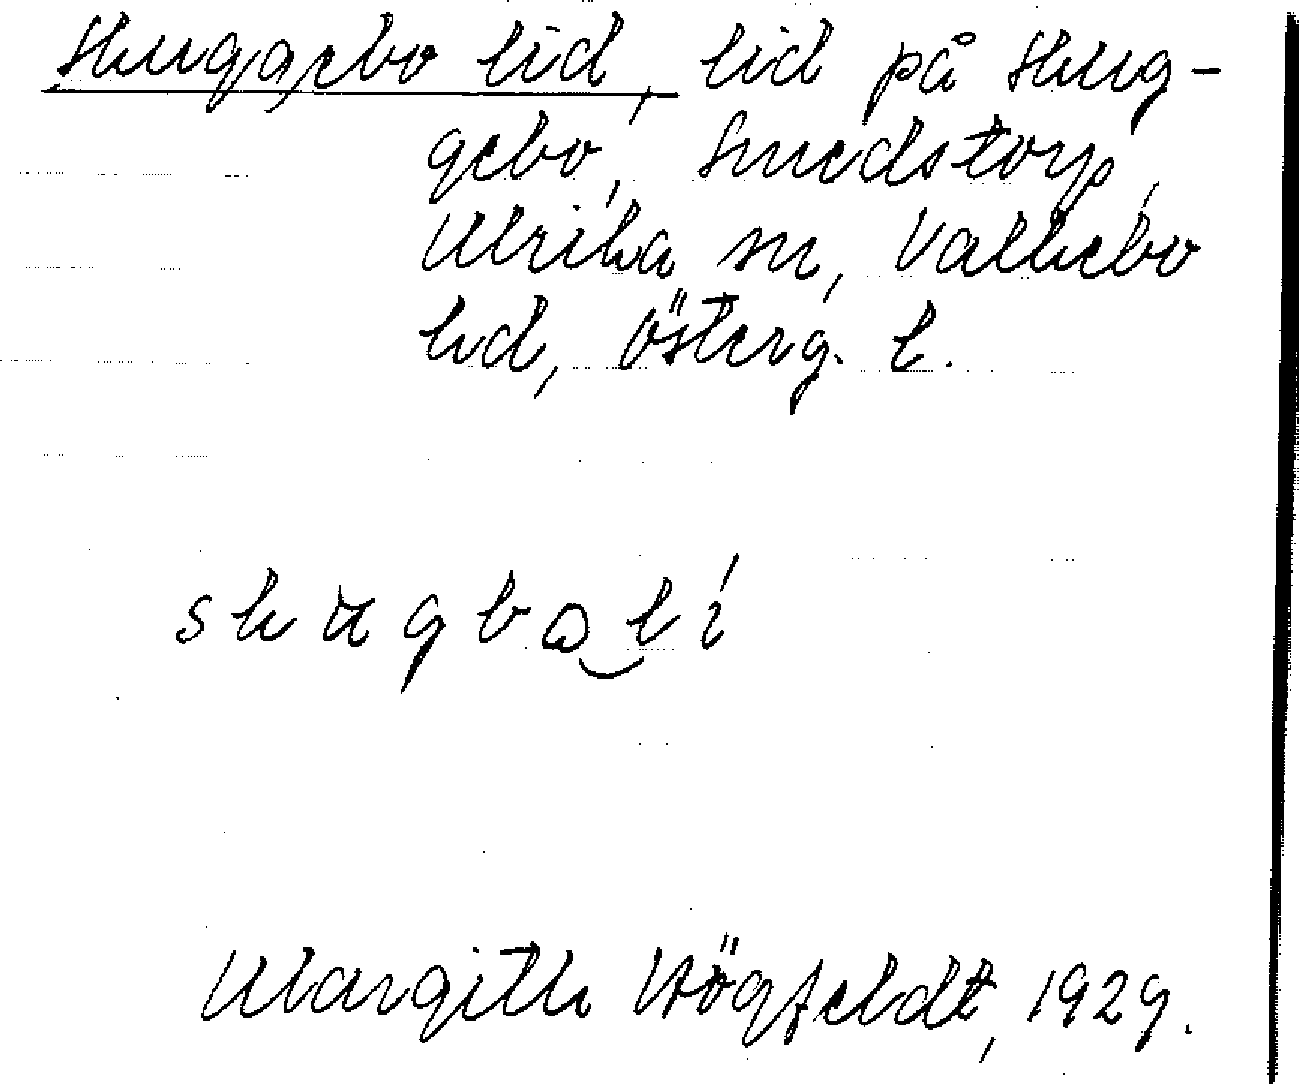 Skuggebo lid, lid på Skug-
gebo, Smedstorp,
Ulrika sn, Valkebo
hd, Österg. l.
Margith Högfeldt, 1929.